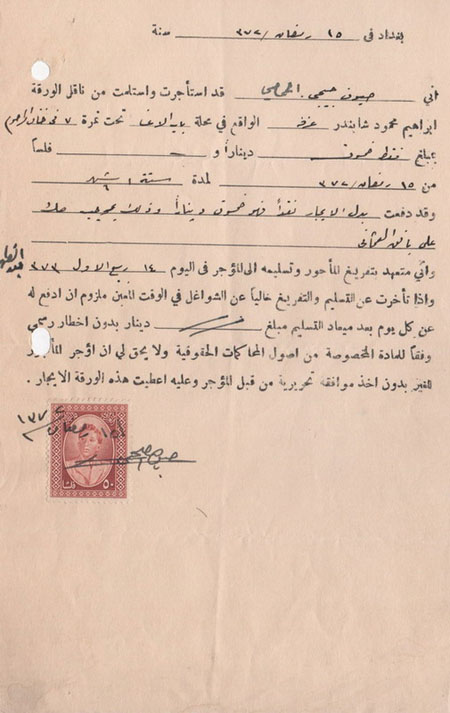 بغداد في ١٥ رمضان /٣٧٢ سنة
اني قد استأجرت واستلمت من ناقل الورقة
ابراهيم محمود شابندر الواقع في محلة تحت نمرة ٧
بمبلغ فقط خمسون ديناراً و فلساً
من ١٥ رمضان /٣٧٢ لمدة ستة اشهر
وقد دفعت بدل الايجار نقداً فهو خمسون ديناراً وذلك بموجب صك
على بانق العثماني
واني متعهد بتفريغ المأجور وتسليمه الى المؤجر في اليوم ١٤ ربيع الاول ٣٧٣
واذا تأخرت عن التسليم والتفريغ خالياً عن الشواغل في الوقت المعين ملزوم ان ادفع له
عن كل يوم بعد ميعاد التسليم مبلغ دينار بدون اخطار رسمي
وفقاً للمادة المخصوصة من اصول المحاكمات الحقوقية ولا يحق لي ان اؤجر المأجور
للغير بدون اخذ موافقة تحريرية من قبل المؤجر وعليه اعطيت هذه الورقة الايجار .
١٥ رمضان ١٣٧٢
٥٠ فلس